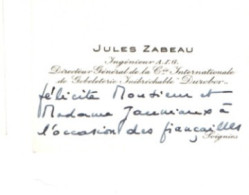 JULES ZABEAU
Ingénieur A.I.G.
Directeur Général de la Cie Internationale
de Gobeleterie Inébréchable "Durobor"
félicite Monsieur et
Madame Jauniaux à
l'occasion des fiançailles
Soignies